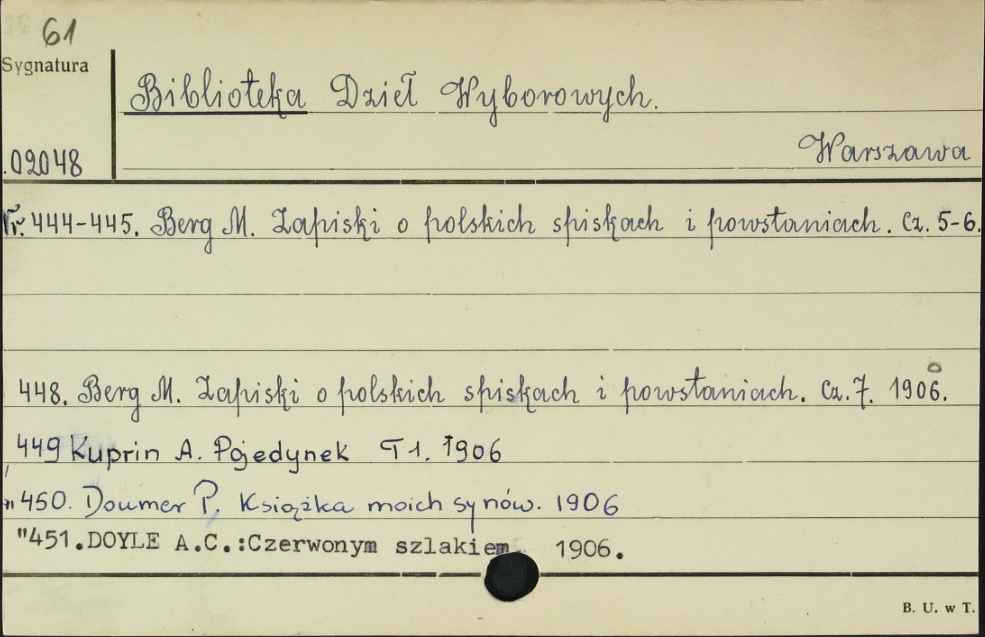 61
Sygnatura
Biblioteka Dzieł Wyborowych.
Warszawa
.02048
Nr. 444-445. Berg M. Zapiski o polskich spiskach i powstaniach. Cz. 5-6.
448. Berg M. Zapiski o polskich spiskach i powstaniach. Cz. 7. 1906.
449 Kuprin A. Pojedynek T 1. 1906
" 450. Doumer P. Książka moich synów. 1906
"451.DOYLE A.C.:Czerwonym szlakiem 1906.
B. U. w T.